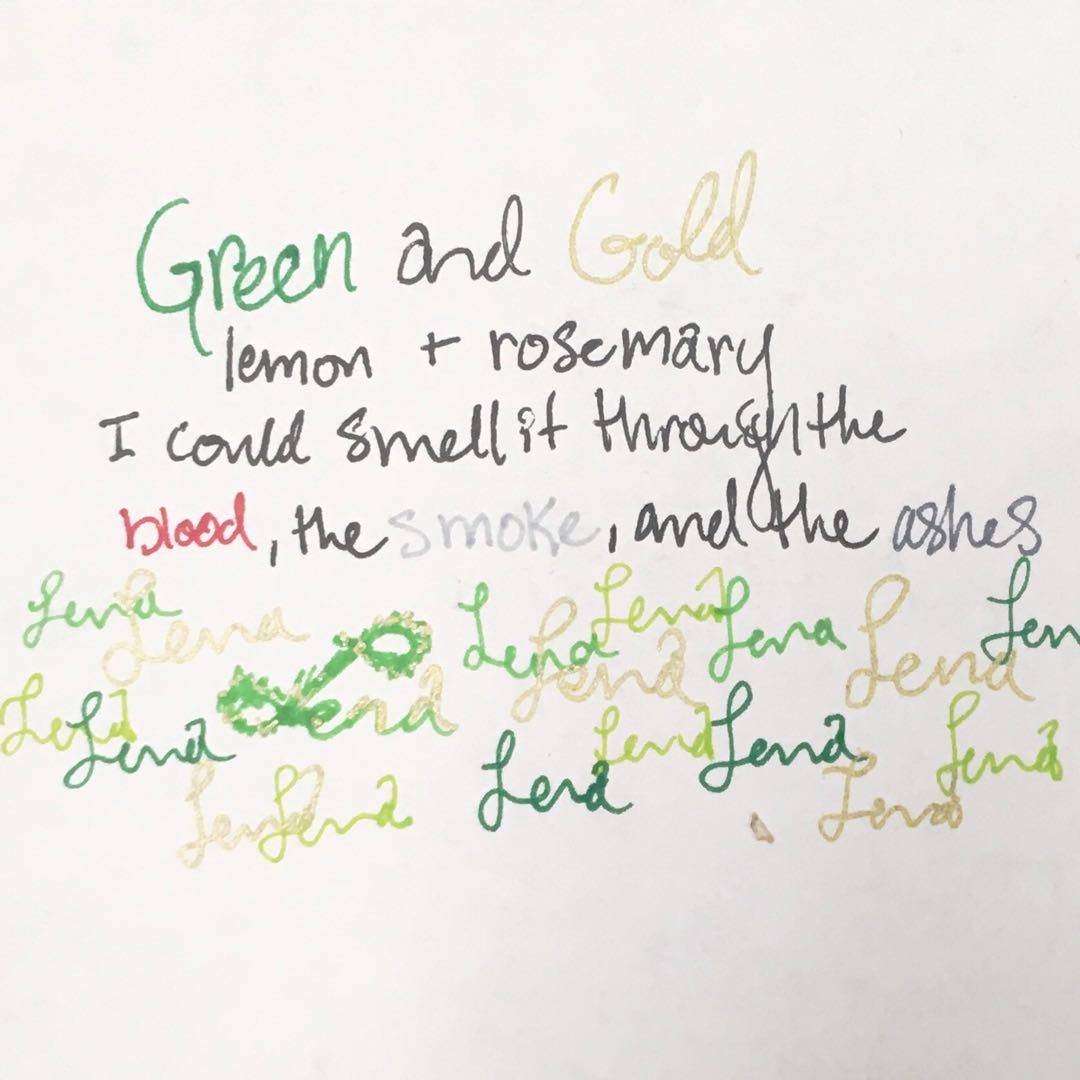 Green and Gold
lemon + rosemary
I could smell it through the
blood, the smoke, and the ashes
Lena Lena Lena Lena Lena Lena Lena Len
Lena Lena Lena Lena Lena Lena Lena Lena
Lena Lena Lena